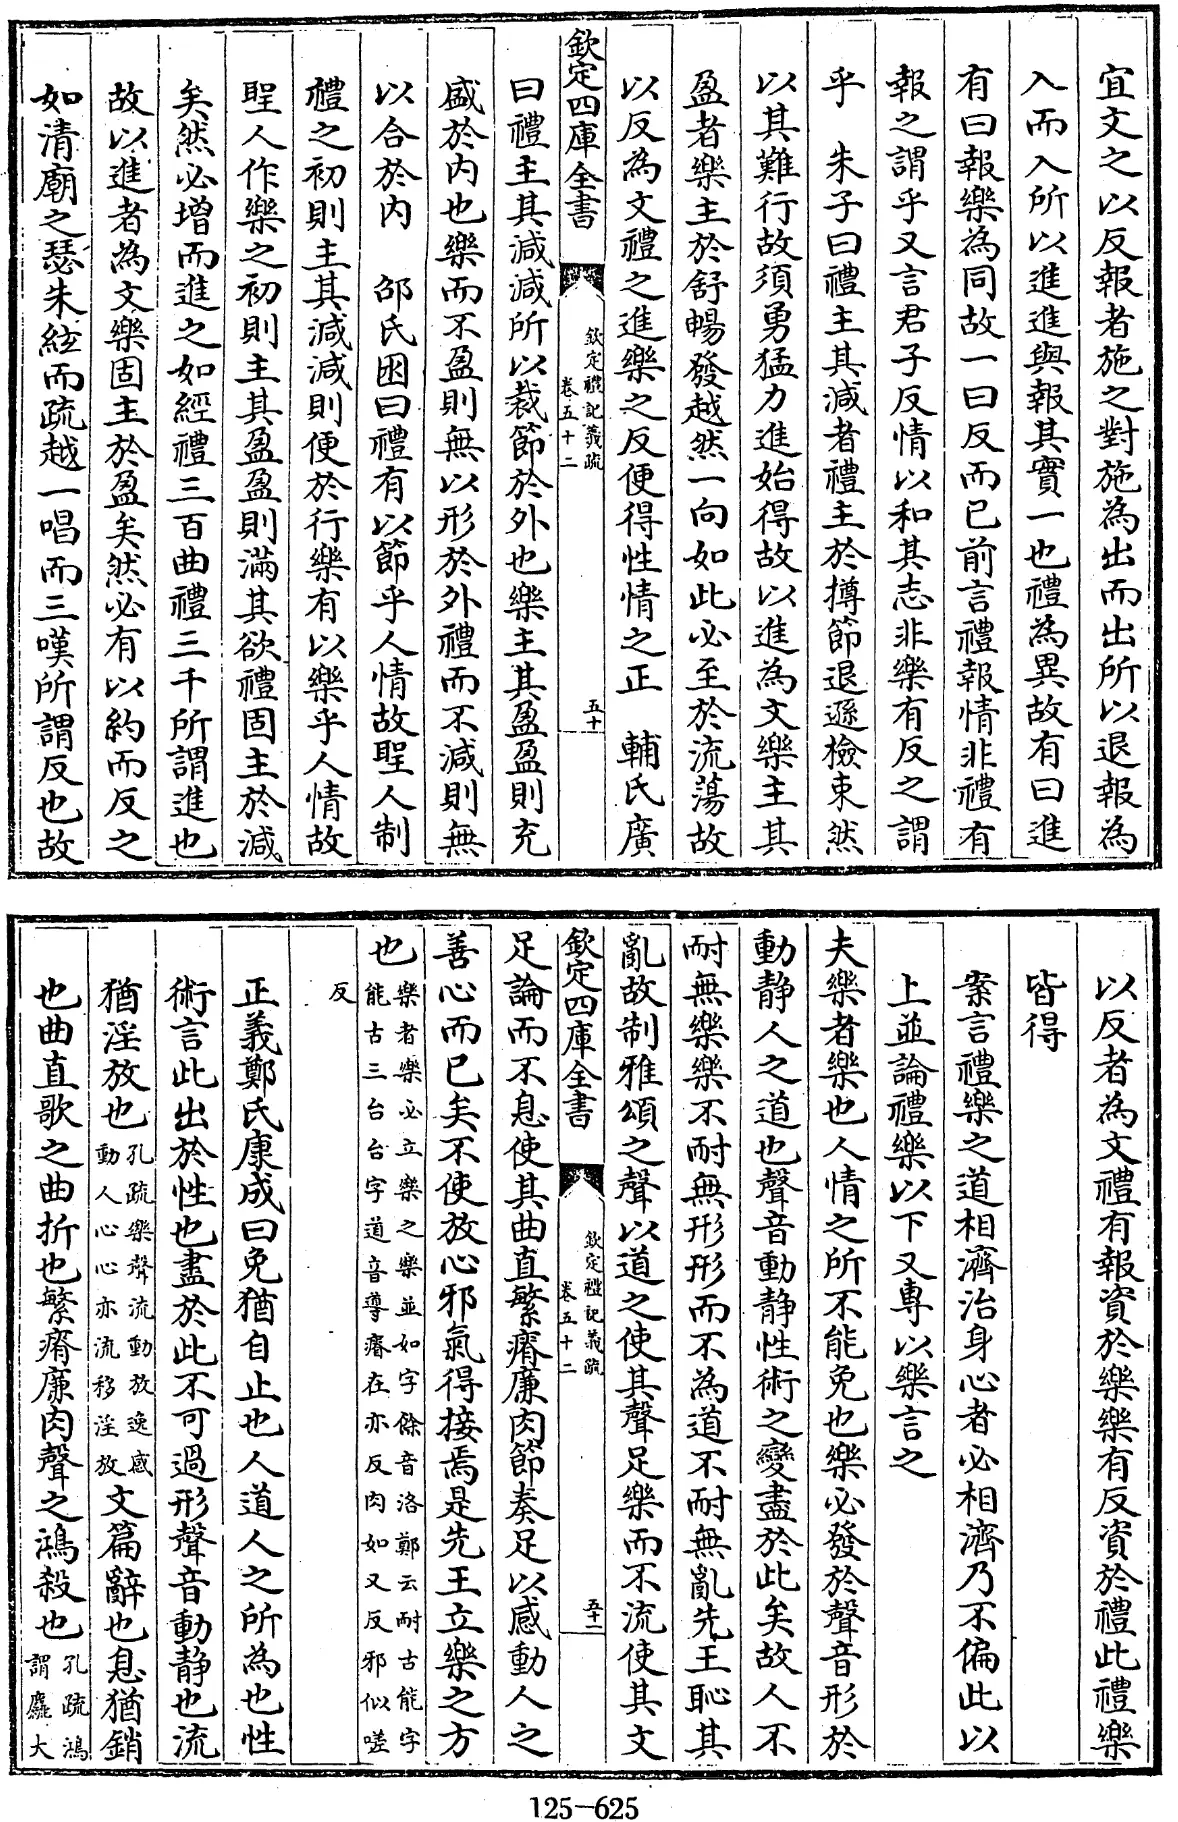 宜文之以反報者施之對施為出而出所以退報為
入而入所以進進與報其實一也禮為異故有曰進
有曰報樂為同故一曰反而已前言禮報情非禮有
報之謂乎又言君子反情以和其志非樂有反之謂
乎　朱子曰禮主其減者禮主於撙節退遜檢束然
以其難行故須勇猛力進始得故以進為文樂主其
盈者樂主於舒暢發越然一向如此必至於流蕩故
以反為文禮之進樂之反便得性情之正　輔氏廣
欽定四庫全書
欽定禮記義疏
卷五十二
五十
曰禮主其減減所以裁節於外也樂主其盈盈則充
盛於内也樂而不盈則無以形於外禮而不減則無
以合於内　邵氏困曰禮有以節乎人情故聖人制
禮之初則主其減減則便於行樂有以樂乎人情故
聖人作樂之初則主其盈盈則滿其欲禮固主於減
矣然必增而進之如經禮三百曲禮三千所謂進也
故以進者為文樂固主於盈矣然必有以約而反之
如清廟之瑟朱絃而疏越一唱而三嘆所謂反也故
以反者為文禮有報資於樂樂有反資於禮此禮樂
皆得
案言禮樂之道相濟治身心者必相濟乃不偏此以
上並論禮樂以下又專以樂言之
夫樂者樂也人情之所不能免也樂必發於聲音形於
動静人之道也聲音動静性術之變盡於此矣故人不
耐無樂樂不耐無形形而不為道不耐無亂先王恥其
亂故制雅頌之聲以道之使其聲足樂而不流使其文
欽定四庫全書
欽定禮記義疏
卷五十二
五十一
足論而不息使其曲直繁瘠廉肉節奏足以感動人之
善心而已矣不使放心邪氣得接焉是先王立樂之方
也樂者樂必立樂之樂並如字餘音洛鄭云耐古能字
能古三台台字道音導瘠在亦反肉如又反邪似嗟
反
正義鄭氏康成曰免猶自止也人道人之所為也性
術言此出於性也盡於此不可過形聲音動静也流
猶淫放也孔疏樂聲流動放逸感
動人心心亦流移淫放文篇辭也息猶銷
也曲直歌之曲折也繁瘠廉肉聲之鴻殺也孔疏鴻
謂麤大
125—625